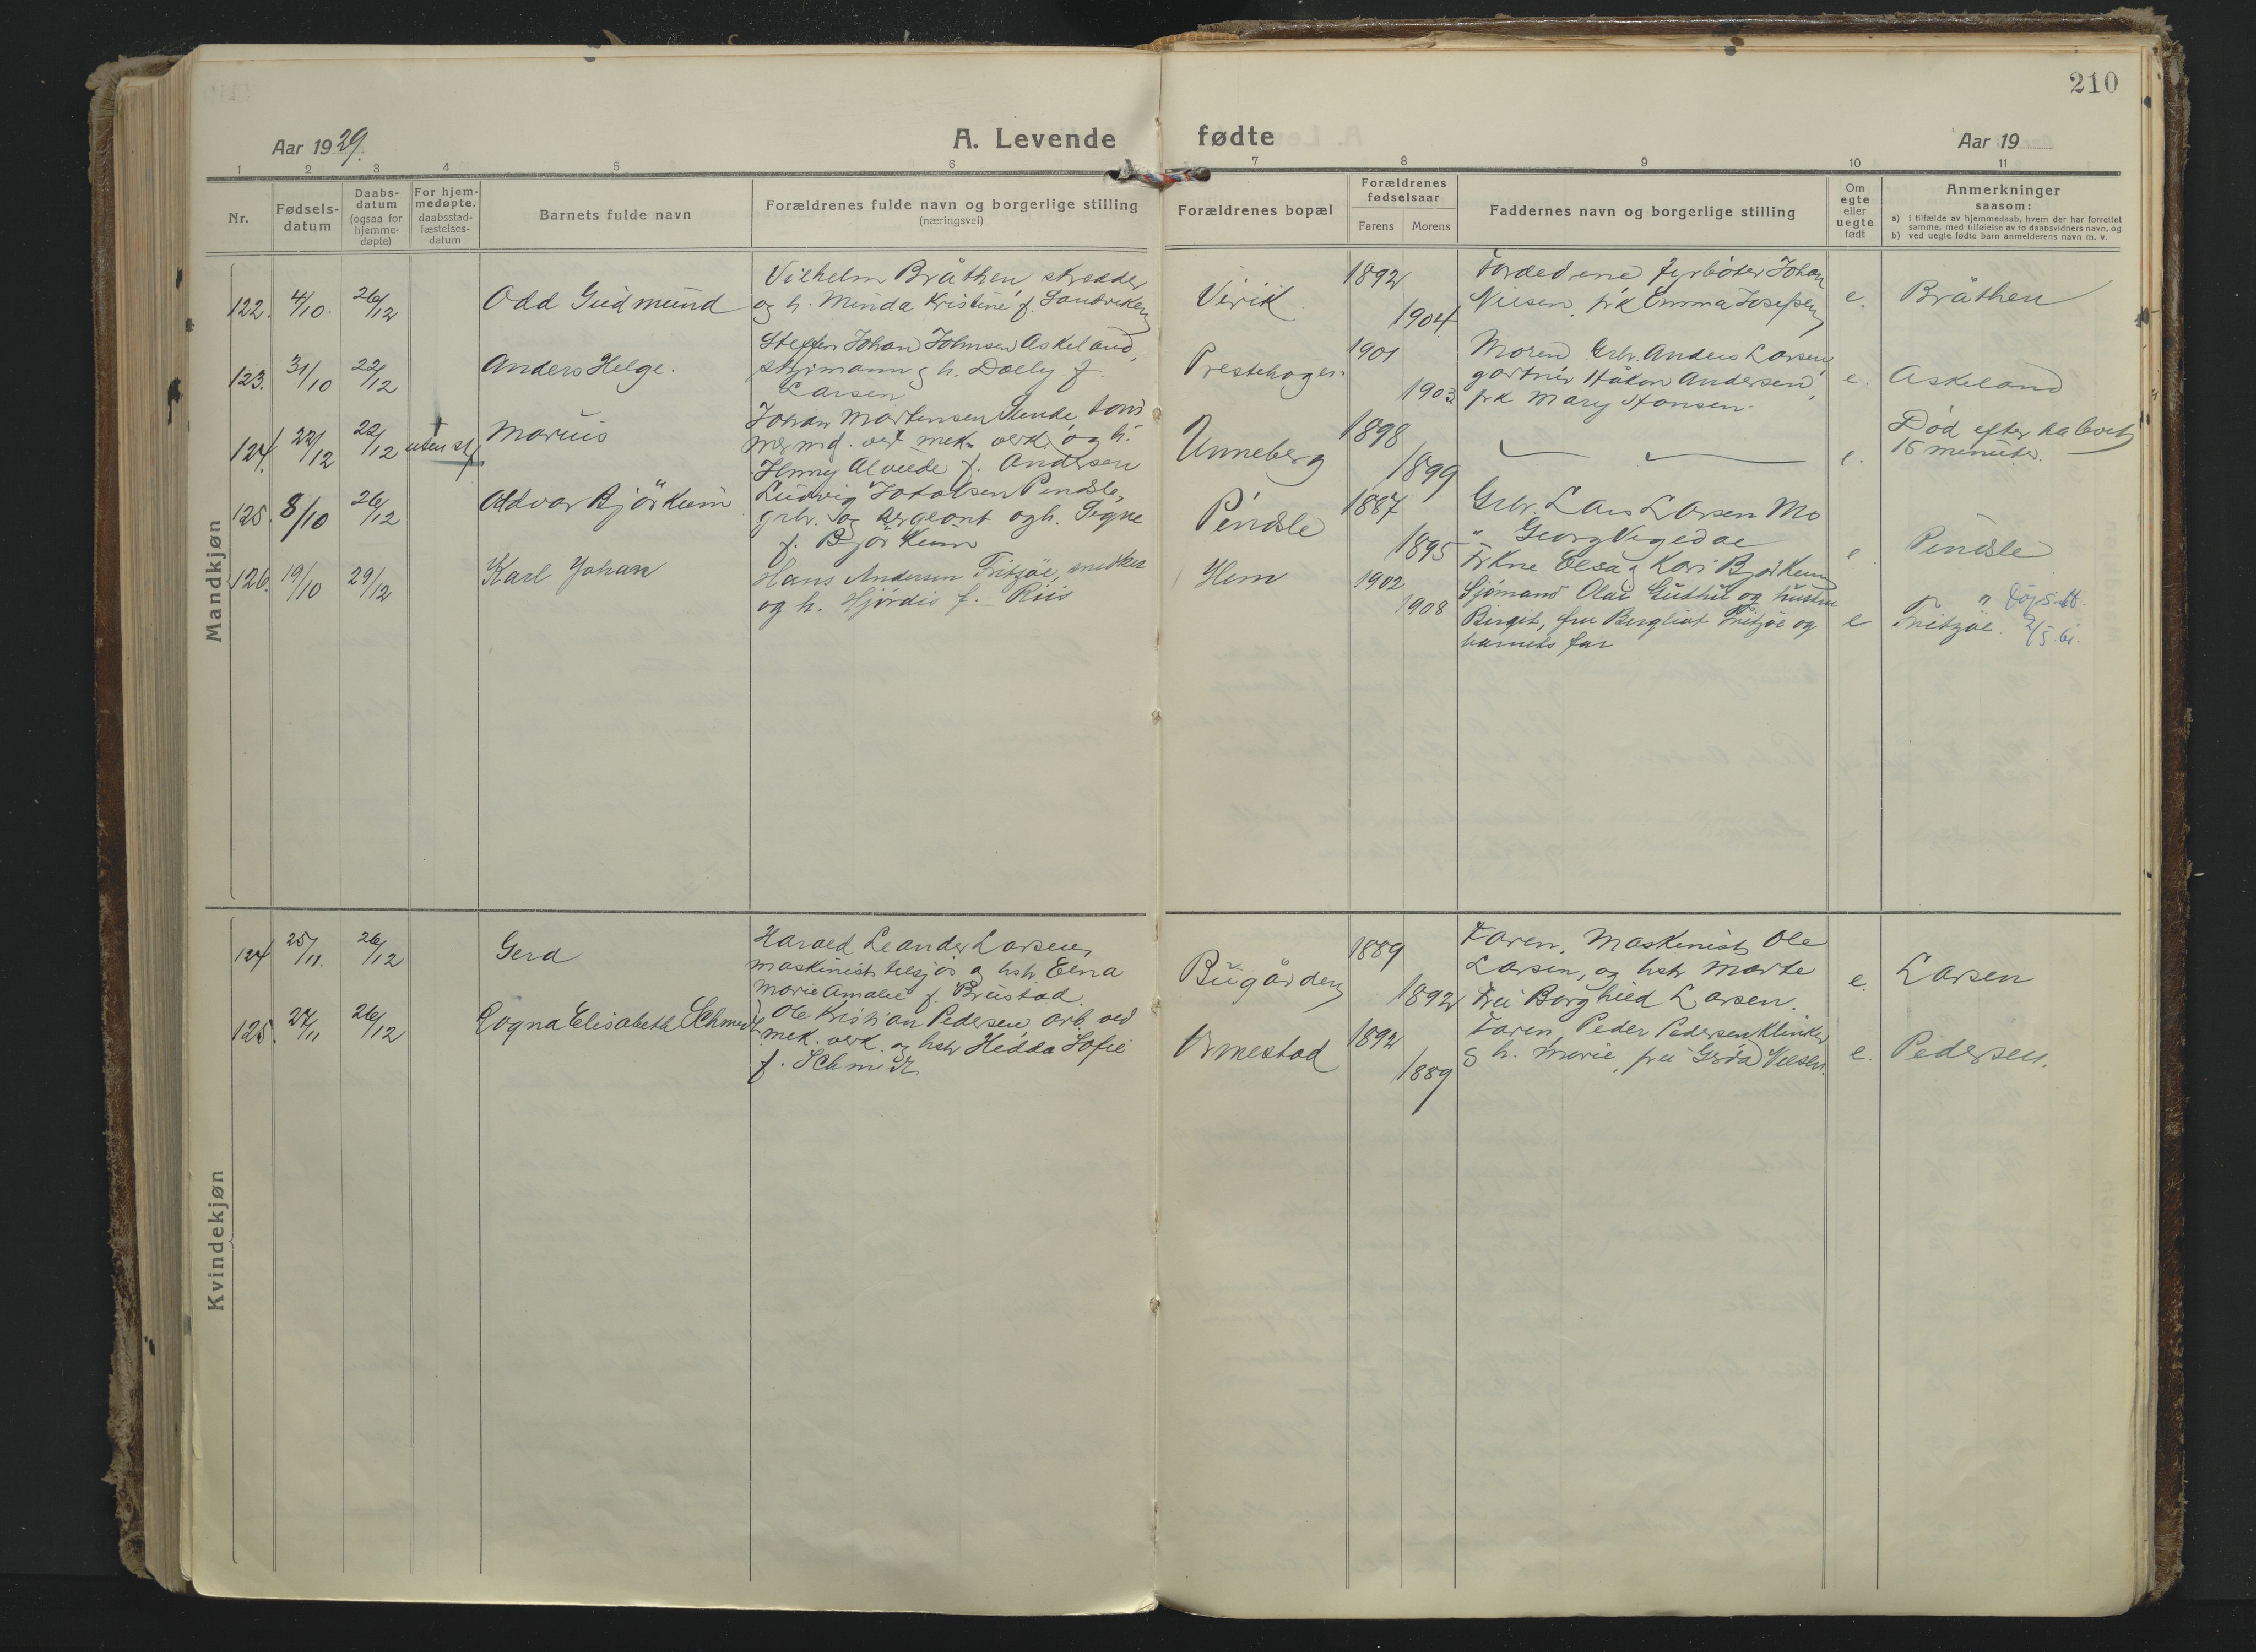 210
Aar 1929.
A. Levende fødte
Aar 19
1 2 3 4 5 6 7 8 9 10 11
Nr.
Fødsels-
datum
Daabs-
datum
(ogsaa for
hjemme-
døpte)
For hjem-
medøpte.
daabsstad-
fæstelses-
datum
Barnets fulde navn
Forældrenes fulde navn og borgerlige stilling
(næringsvei)
Forældrenes bopæl
Forældrenes
fødselsaar
Farens Morens
Faddernes navn og borgerlige stilling
Om
egte
eller
uegte
født
Anmerkninger
saasom:
a) i tilfælde av hjemmedaab, hvem der har forrettet
samme, med tilføielse av to daabsvidners navn, og
b) ved uegte fødte barn anmelderens navn m. v.
Mandkjøn
122. 4/10. 26/12
Odd Gudmund
Vilhelm Bråthen, skrædder
og h. Minda Kristine f.
Virik.
1892
1904
Forældrene, fyrbøter Johan
Nilsen, frk Emma Josefsen
e.
Bråthen
123. 31/10 22/12
Anders Helge.
Steffen Johan Johnsen Askeland,
styrmann og h. Dolly f.
Larsen
Prestehagen.
1901
1903.
Moren, Grbr. Anders Larsen,
gartner Håkon Andersen,
frk Mary Hansen.
e.
Askeland
124. 22/12 22/12 uten st.
Marius
Johan Martensen
ved mek. verk. og h.
Henny Alvilde f. Andersen
Unneberg
1898
1899
e.
Død efter ha levet
15 minuter.
125. 8/10 26/12
Oddvar Bjørkum
Ludvig Jakobsen Pindsle,
grbr. og sergeant og h. Signe
f. Bjørkum
Pindsle
1887
1895
Grbr. Lars Larsen Mo
" Georg Vegedal
Frkne Elsa og Kari Bjørkum
e
Pindsle
126. 19/10 29/12
Karl Johan
Hans Andersen Tritzøe,
og h. Hjørdis f. Riis
Hem
1902
1908
Sjømand Olav Guthu og hustru
Birgit, fru Bergliot Tritzøe og
barnets far
e
Tritzøe.
2/5. 61.
Kvindekjøn
124 25/11. 26/12
Gerd
Harald Leander Larsen,
maskinist tilsjøs og hstr Elna
Marie Amalie f. Brustad.
Bugården
1889
1892
Faren, Maskinist Ole
Larsen, og hstr Marte
Fru Borghild Larsen.
e.
Larsen
125. 27/11 26/12
Ragna Elisabeth Schmidt
Ole Kristian Pedersen, arb. ved
mek. verk. og hstr Hedda Sofie
f. Schmidt
Ormestad
1892
1889
Faren, Peder Pedersen Klinker
og h. Marie, fru Gerda Nilsen.
e.
Pedersen.